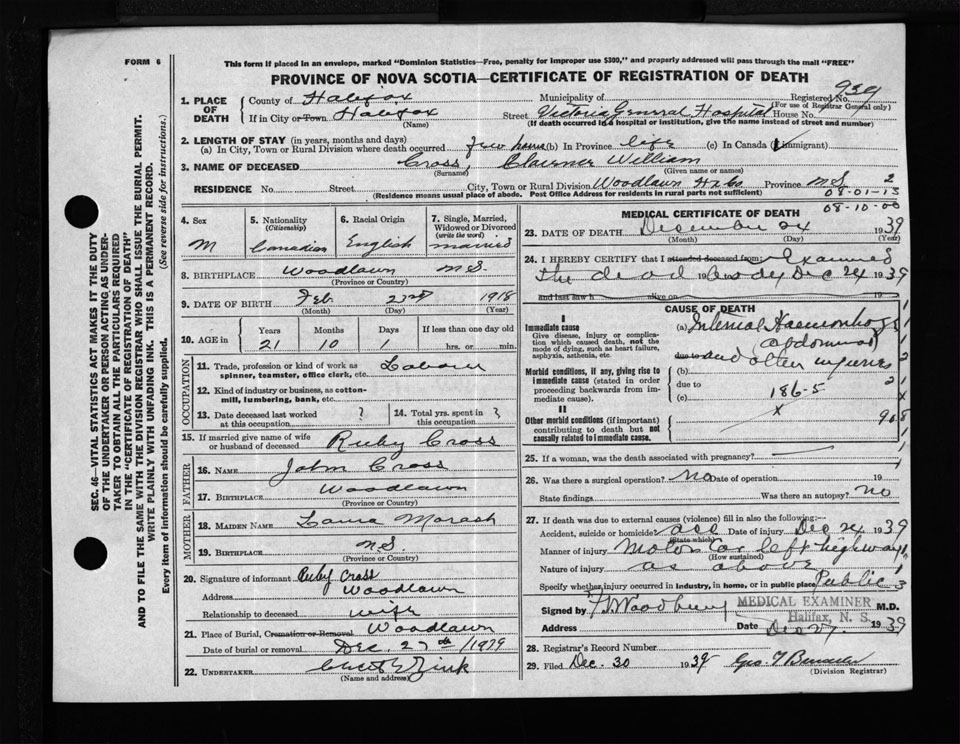 FORM 6
This form if placed in an envelope, marked "Dominion Statistics—Free, penalty for improper use $300," and properly addressed will pass through the mail "FREE"
PROVINCE OF NOVA SCOTIA—CERTIFICATE OF REGISTRATION OF DEATH
1. PLACE OF DEATH
County of Halifax Municipality of Registered No. 939
(For use of Registrar General only)
If in City or Town Halifax Street Victoria General Hospital House No.
(Name) (If death occurred in a hospital or institution, give the name instead of street and number)
2. LENGTH OF STAY (in years, months and days)
(a) In City, Town or Rural Division where death occurred few hours (b) In Province life (c) In Canada (if immigrant)
3. NAME OF DECEASED Cross, Clarence William
(Surname) (Given name or names)
RESIDENCE No. Street City, Town or Rural Division Woodlawn Hx Co. Province N.S. 2
(Residence means usual place of abode. Post Office Address for residents in rural parts not sufficient) 08-01-13
08-10-00
4. Sex 5. Nationality (Citizenship) 6. Racial Origin 7. Single, Married, Widowed or Divorced (write the word)
M Canadian English married
8. BIRTHPLACE Woodlawn N.S.
(Province or Country)
9. DATE OF BIRTH Feb 23rd 1918
(Month) (Day) (Year)
10. AGE in Years Months Days If less than one day old
21 10 1 hrs. or min.
OCCUPATION
11. Trade, profession or kind of work as spinner, teamster, office clerk, etc. Labour
12. Kind of industry or business, as cotton-mill, lumbering, bank, etc.
13. Date deceased last worked at this occupation ? 14. Total yrs. spent in this occupation ?
15. If married give name of wife or husband of deceased Ruby Cross
FATHER
16. NAME John Cross
17. BIRTHPLACE Woodlawn
(Province or Country)
MOTHER
18. MAIDEN NAME Laura Morash
19. BIRTHPLACE N.S.
(Province or Country)
20. Signature of informant Ruby Cross
Address Woodlawn
Relationship to deceased wife
21. Place of Burial, Cremation or Removal Woodlawn
Date of burial or removal Dec. 27th /1939
22. UNDERTAKER Zink
(Name and address)
MEDICAL CERTIFICATE OF DEATH
23. DATE OF DEATH December 24 1939
(Month) (Day) (Year)
24. I HEREBY CERTIFY that I attended deceased from: Examined
the dead body Dec 24 1939
and last saw h alive on 19
CAUSE OF DEATH
I
Immediate cause
Give disease, injury or complication which caused death, not the mode of dying, such as heart failure, asphyxia, asthenia, etc.
(a) Internal Haemorrhage
abdominal
due to and other injuries
Morbid conditions, if any, giving rise to immediate cause (stated in order proceeding backwards from immediate cause).
(b)
due to
(c) 186-5
II
x
Other morbid conditions (if important) contributing to death but not causally related to immediate cause.
25. If a woman, was the death associated with pregnancy?
26. Was there a surgical operation? No Date of operation 19
State findings Was there an autopsy? no
27. If death was due to external causes (violence) fill in also the following:
Accident, suicide or homicide? acc Date of injury Dec 24 1939
(State which)
Manner of injury Motor Car left highway
(How sustained)
Nature of injury as above
Specify whether injury occurred in industry, in home, or in public place Public 3
Signed by MEDICAL EXAMINER M.D.
Halifax, N. S.
Address Date Dec 27. 1939
28. Registrar's Record Number
29. Filed Dec. 30 1939
(Division Registrar)
SEC. 46—VITAL STATISTICS ACT MAKES IT THE DUTY
OF THE UNDERTAKER OR PERSON ACTING AS UNDER-
TAKER TO OBTAIN ALL THE PARTICULARS REQUIRED
IN THE "CERTIFICATE OF REGISTRATION OF DEATH"
AND TO FILE THE SAME WITH THE DIVISION REGISTRAR WHO SHALL ISSUE THE BURIAL PERMIT.
WRITE PLAINLY WITH UNFADING INK. THIS IS A PERMANENT RECORD.
Every item of information should be carefully supplied. (See reverse side for instructions.)